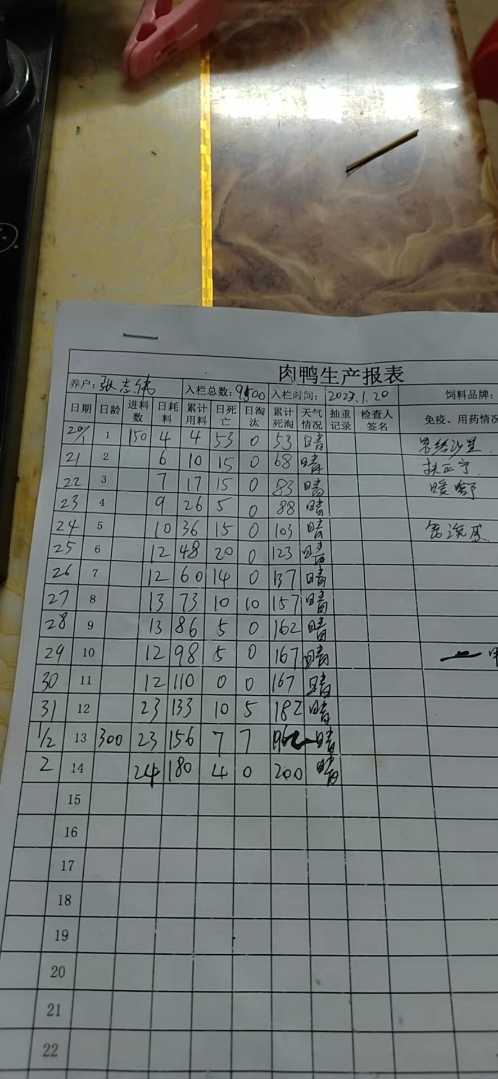 肉鸭生产报表
养户: 张志伟 入栏总数: 9500 入栏时间: 2023.1.20 饲料品牌:
日期 日龄 进料数 日耗料 累计用料 日死亡 日淘汰 累计死淘 天气情况 抽重记录 检查人签名 免疫、用药情况
20/1 1 150 4 4 53 0 53 晴
21 2 6 10 15 0 68 晴
22 3 7 17 15 0 83 晴
23 4 9 26 5 0 88 晴
24 5 10 36 15 0 103 晴
25 6 12 48 20 0 123 晴
26 7 12 60 14 0 137 晴
27 8 13 73 10 10 157 晴
28 9 13 86 5 0 162 晴
29 10 12 98 5 0 167 晴
30 11 12 110 0 0 167 晴
31 12 23 133 10 5 182 晴
1/2 13 300 23 156 7 7 晴
2 14 24 180 4 0 200 晴
15
16
17
18
19
20
21
22